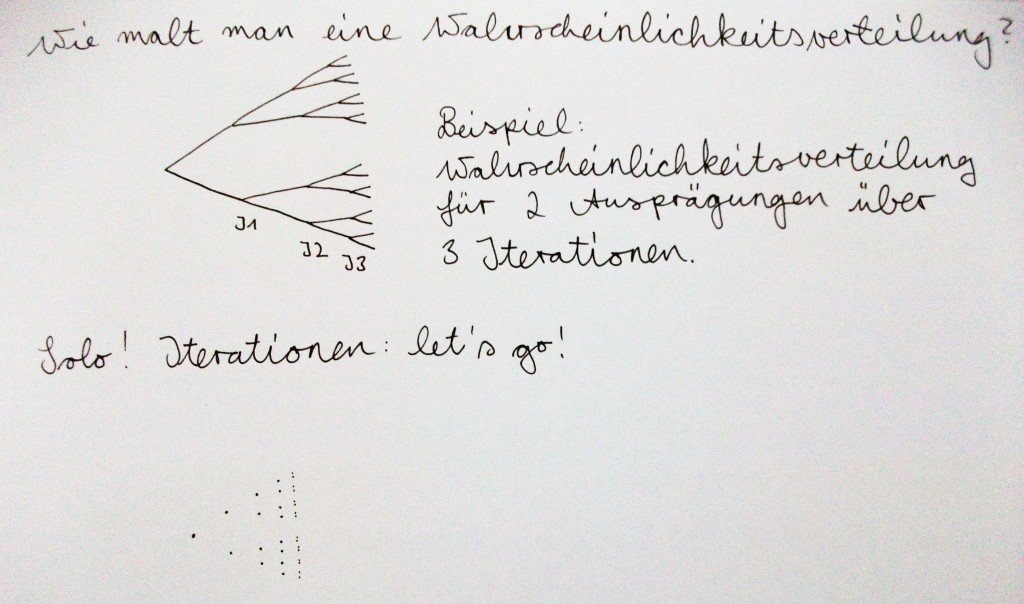 Wie malt man eine Wahrscheinlichkeitsverteilung?
Beispiel:
Wahrscheinlichkeitsverteilung
für 2 Ausprägungen über
3 Iterationen.
I1
I2 I3
Solo! Iterationen: let's go!